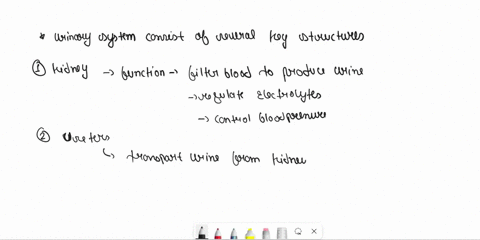 * Urinary system consist of several key structures
① Kidney → function → filter blood to produce urine
→ regulate electrolytes
→ control blood pressure
② Ureters
↳ transport urine from kidney